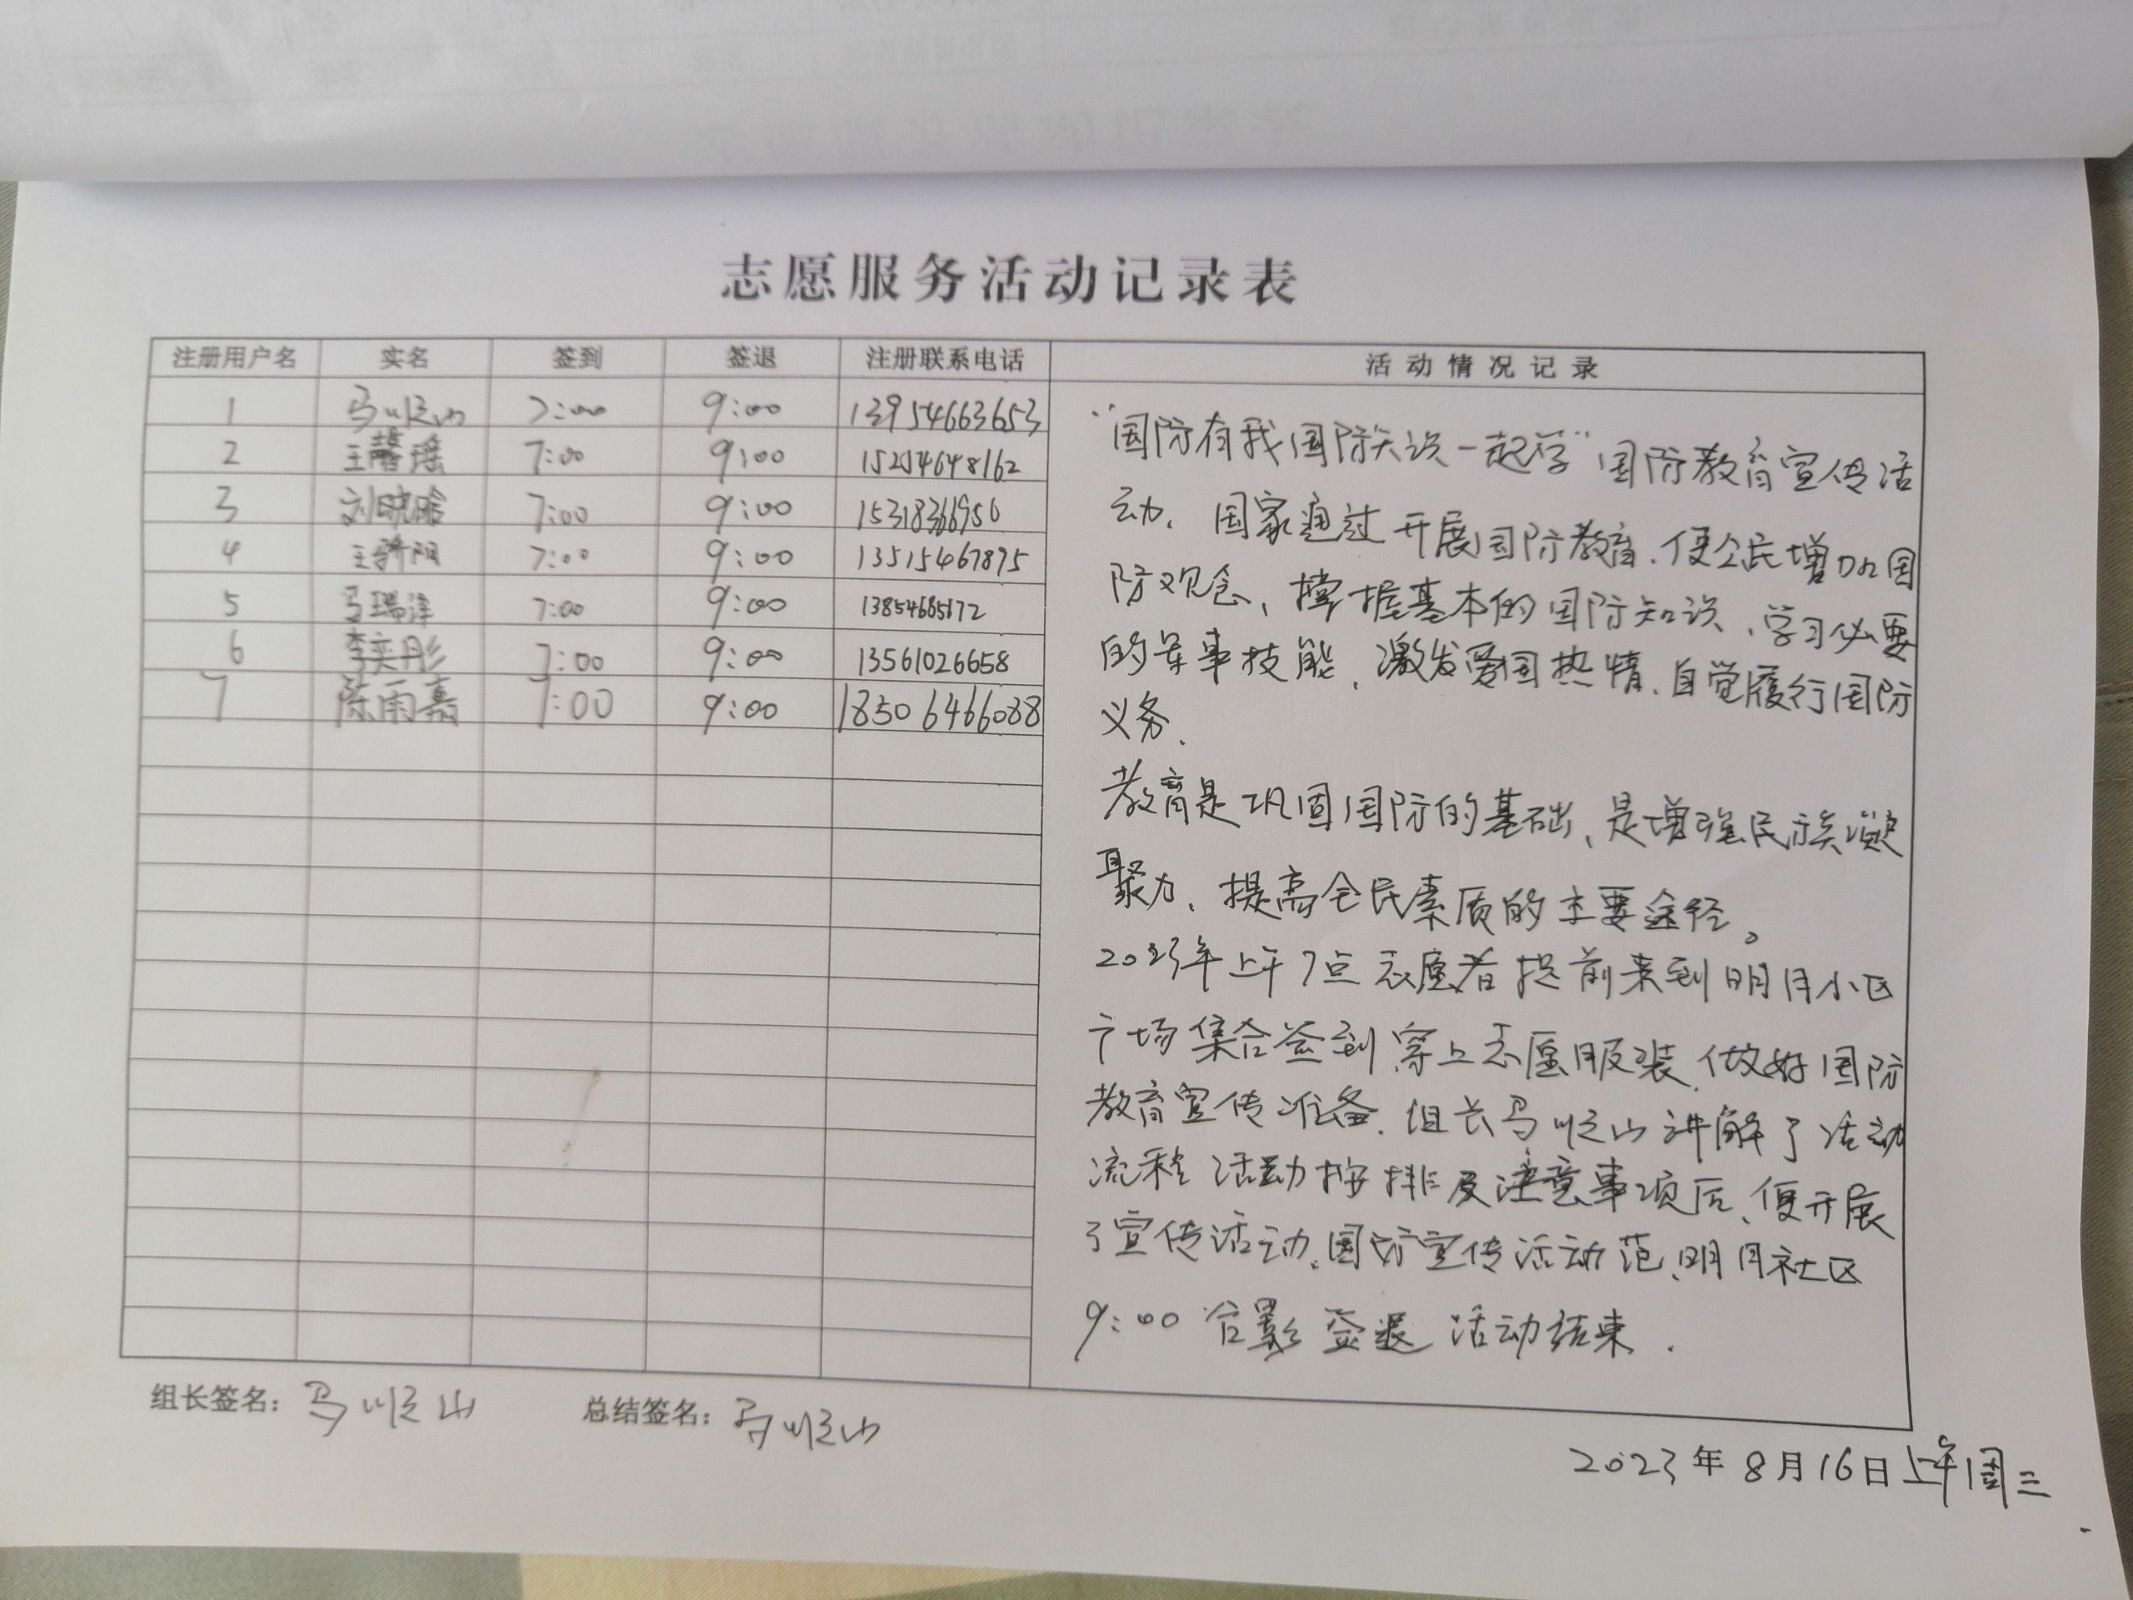 志愿服务活动记录表
注册用户名 实名 签到 签退 注册联系电话 活动情况记录
1 马顺山 7:00 9:00 13954663653
2 王馨瑶 7:00 9:00 15254648162
3 刘晓晗 7:00 9:00 15318366950
4 王骄阳 7:00 9:00 13515467895
5 马瑞泽 7:00 9:00 13854685172
6 李奕彤 7:00 9:00 13561026658
7 陈雨嘉 7:00 9:00 18506466088
“国防有我国防知识一起学”国防教育宣传活
动、国家通过开展国防教育、使公民增加国
防观念、掌握基本的国防知识、学习必要
的军事技能、激发爱国热情、自觉履行国防
义务、
教育是巩固国防的基础、是增强民族凝
聚力、提高全民素质的主要途径。
2023年上午7点志愿者提前来到明月小区
广场集合签到穿上志愿服装、做好国防
教育宣传准备、组长马顺山讲解了活动
流程活动按排及注意事项后、便开展
了宣传活动、国防宣传活动范、明月社区
9:00合影签退活动结束.
组长签名：马顺山 总结签名：马顺山
2023年8月16日上午周三